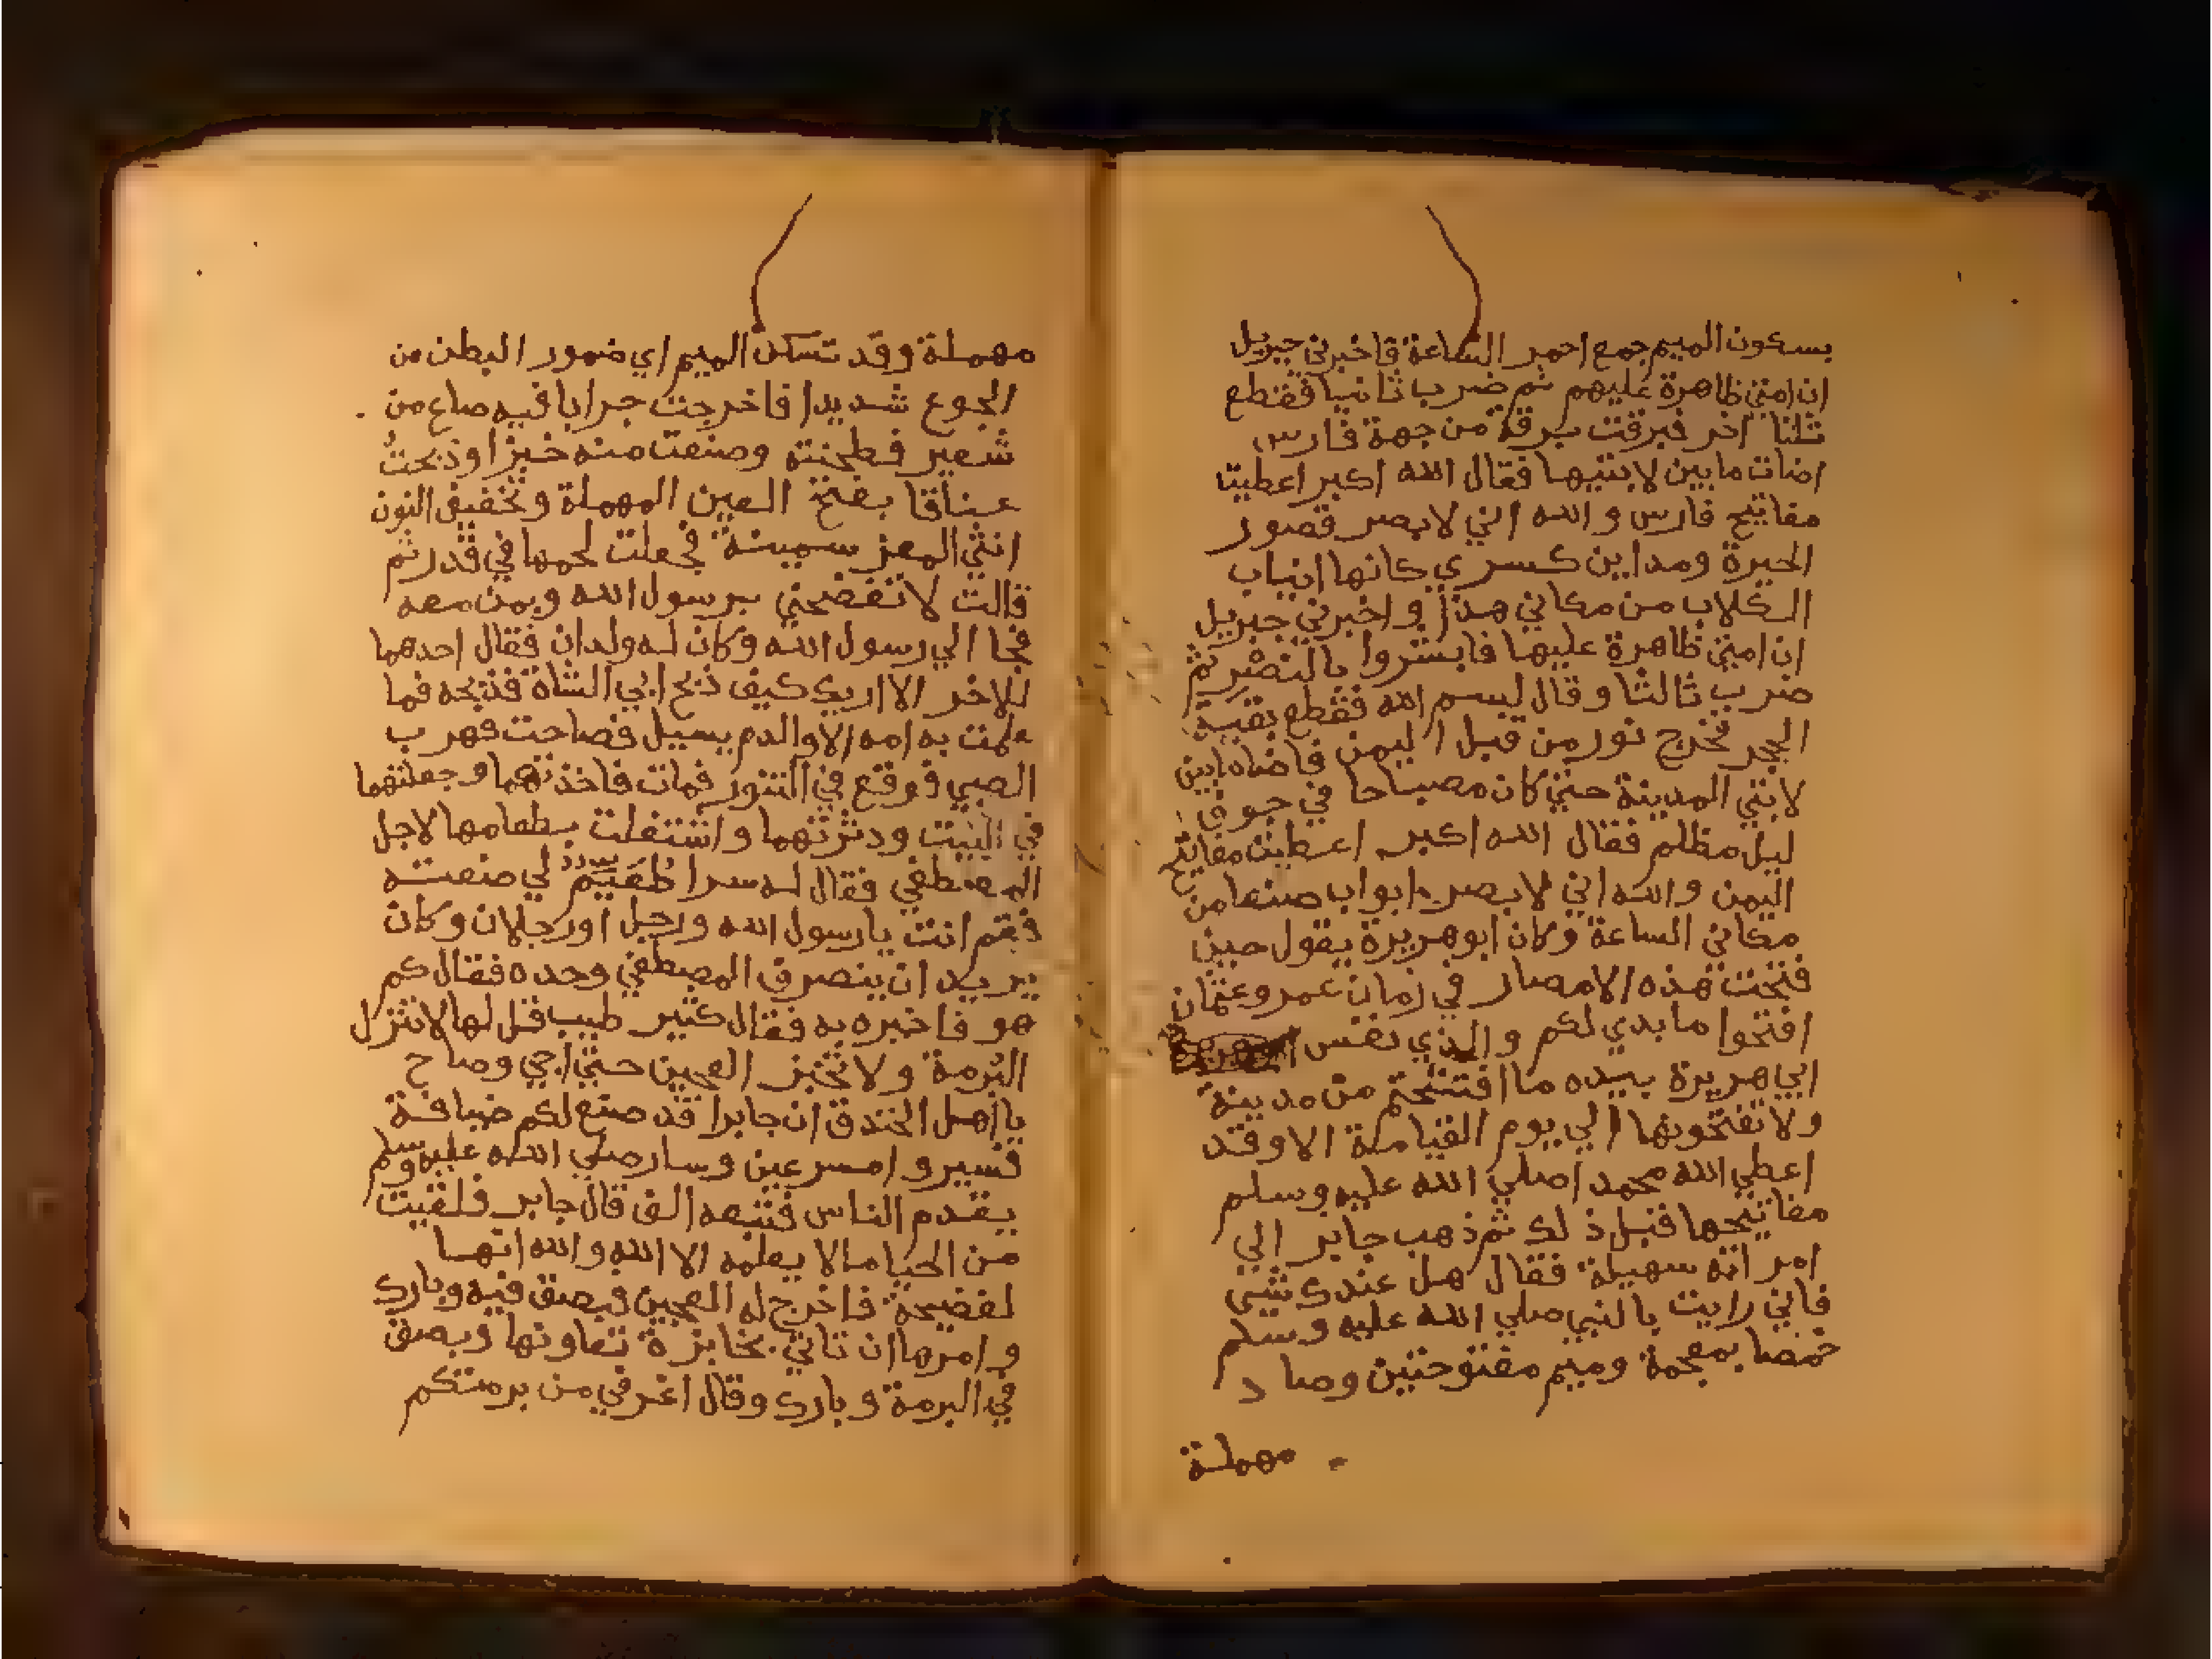 بسكون الميم جمع احمر الساعة فاخبرني جبريل
ان امتي ظاهرة عليهم ثم ضرب ثانيا فقطع
ثلثا اخر فبرقت برقة من جهة فارس
اضات مابين لابتيها فقال الله اكبر اعطيت
مفاتيح فارس والله اني لابصر قصور
الحيرة ومداين كسري كانها انياب
الكلاب من مكاني هذا واخبرني جبريل
ان امتي ظاهرة عليها فابشروا بالنصر ثم
ضرب ثالثا وقال بسم الله فقطع بقية
الحجر فخرج نور من قبل اليمن فاضاه مابين
لابتي المدينة حتي كان مصباحا في جوف
ليل مظلم فقال الله اكبر اعطيت مفاتيح
اليمن والله اني لابصر ابواب صنعا من
مكاني الساعة وكان ابوهريرة يقول حين
فتحت هذه الامصار في زمان عمر وعثمان
افتحوا مابدي لكم والذي نفس
ابي هريرة بيده ما افتتحتم من مدينة
ولا تفتحونها الي يوم القيامة الا وقد
اعطي الله محمدا صلي الله عليه وسلم
مفاتيحها قبل ذلك ثم ذهب جابر الي
امراته سهيلة فقال هل عندك شيى
فاني رايت بالنبي صلي الله عليه وسلم
خمصا بمعجمة وميم مفتوحتين وصاد
مهملة
مهملة وقد تسكن الميم اي ضمور البطن من
الجوع شديدا فاخرجت جرابا فيه صاع من
شعير فطحنته وصنعت منه خبزا وذبحت
عناقا بفتح العين المهملة وتخفيف النون
انثي المعز سمينة فجعلت لحمها في قدر ثم
قالت لا تفضحني برسول الله وبمن معه
فجا الي رسول الله وكان له ولدان فقال احدهما
للاخر الا اريك كيف ذبح ابي الشاة فذبحه فما
علمت به امه الا والدم يسيل فصاحت فهرب
الصبي فوقع في التنور فمات فاخذتهما وجعلتهما
في البيت ودثرتهما واشتغلت بطعامها لاجل
المصطفي فقال له سرا طعيم لي صنعته
فقم انت يارسول الله ورجل اورجلان وكان
يريد ان ينصرف المصطفي وحده فقال كم
هو فاخبره به فقال كثير طيب قل لها لاتنزل
البرمة ولا تخبز العجين حتي اجي وصاح
يا اهل الخندق ان جابرا قد صنع لكم ضيافة
فسيروا مسرعين وسار صلي الله عليه وسلم
يقدم الناس فتبعه الف قال جابر فلقيت
من الحيا مالا يعلمه الا الله والله انها
لفضيحة فاخرج له العجين فبصق فيه وبارك
وامرها ان تاتي بخابزة تعاونها وبصق
في البرمة وبارك وقال اغرفي من برمتكم